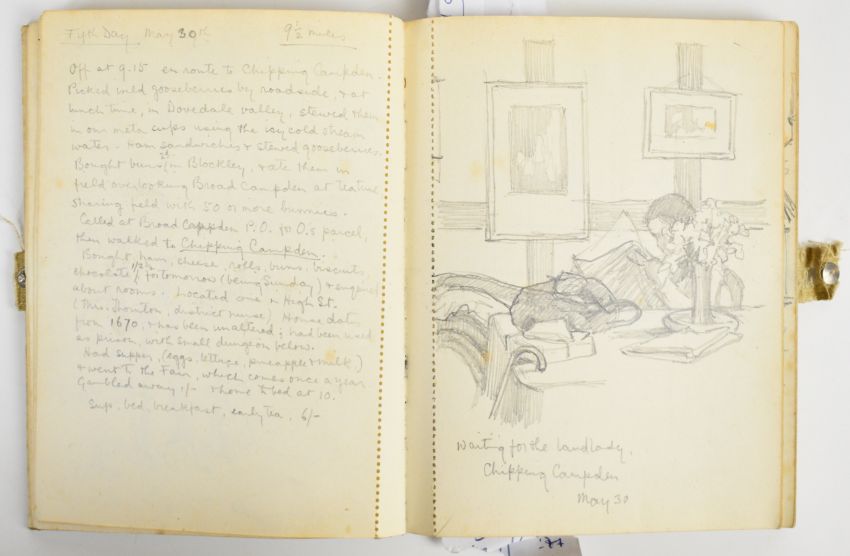 Fifth Day. May 30th 9½ miles
Off at 9-15 en route to Chipping Campden.
Picked wild gooseberries by roadside, & at
lunch time, in Dovedale valley, stewed them
in our metal cups using the icy cold stream
water. Ham sandwiches & stewed gooseberries.
Bought buns in Blockley, & ate them in
field overlooking Broad Campden at teatime
sharing field with 50 or more bunnies.
Called at Broad Campden P.O. for O.s parcel,
then walked to Chipping Campden.
Bought, ham, cheese, rolls, buns, biscuits,
chocolate for tomorrow (being Sunday) & enquired
about rooms. Located one in High St.
(Mrs. Thornton, district nurse) House dates
from 1670, & has been unaltered; had been used
as prison, with small dungeon below.
Had supper, (eggs, lettuce, pineapple & milk)
& went to the Fair, which comes once a year.
Gambled away 1/- & home to bed at 10.
Sup, bed, breakfast, early tea, 6/-
Waiting for the landlady.
Chipping Campden
May 30